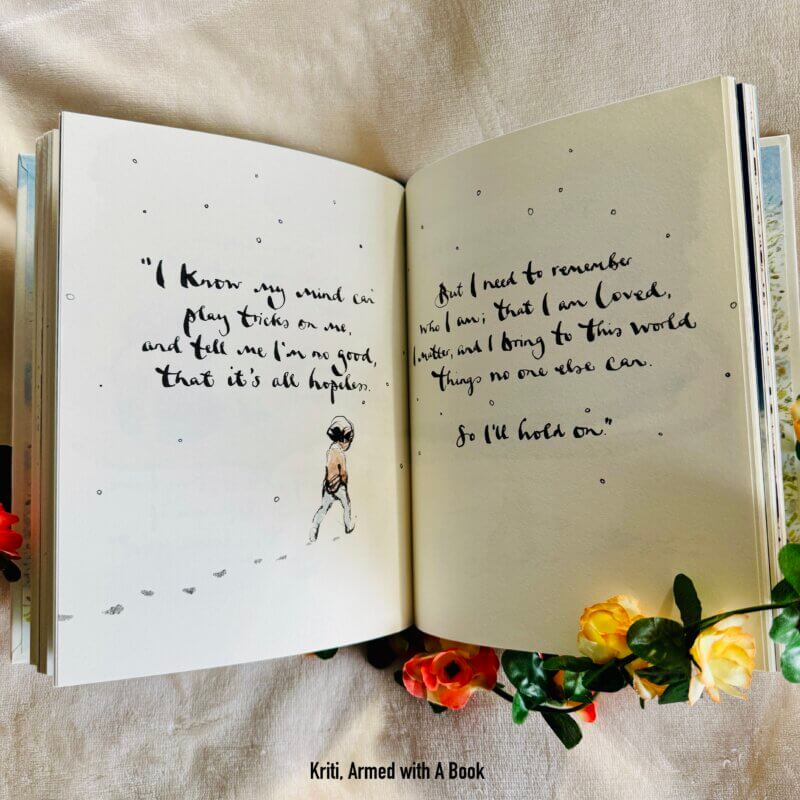 "I know my mind can
play tricks on me,
and tell me I'm no good,
that it's all hopeless.
But I need to remember
who I am; that I am loved,
I matter, and I bring to this world
things no one else can.
So I'll hold on."
Kriti, Armed with A Book